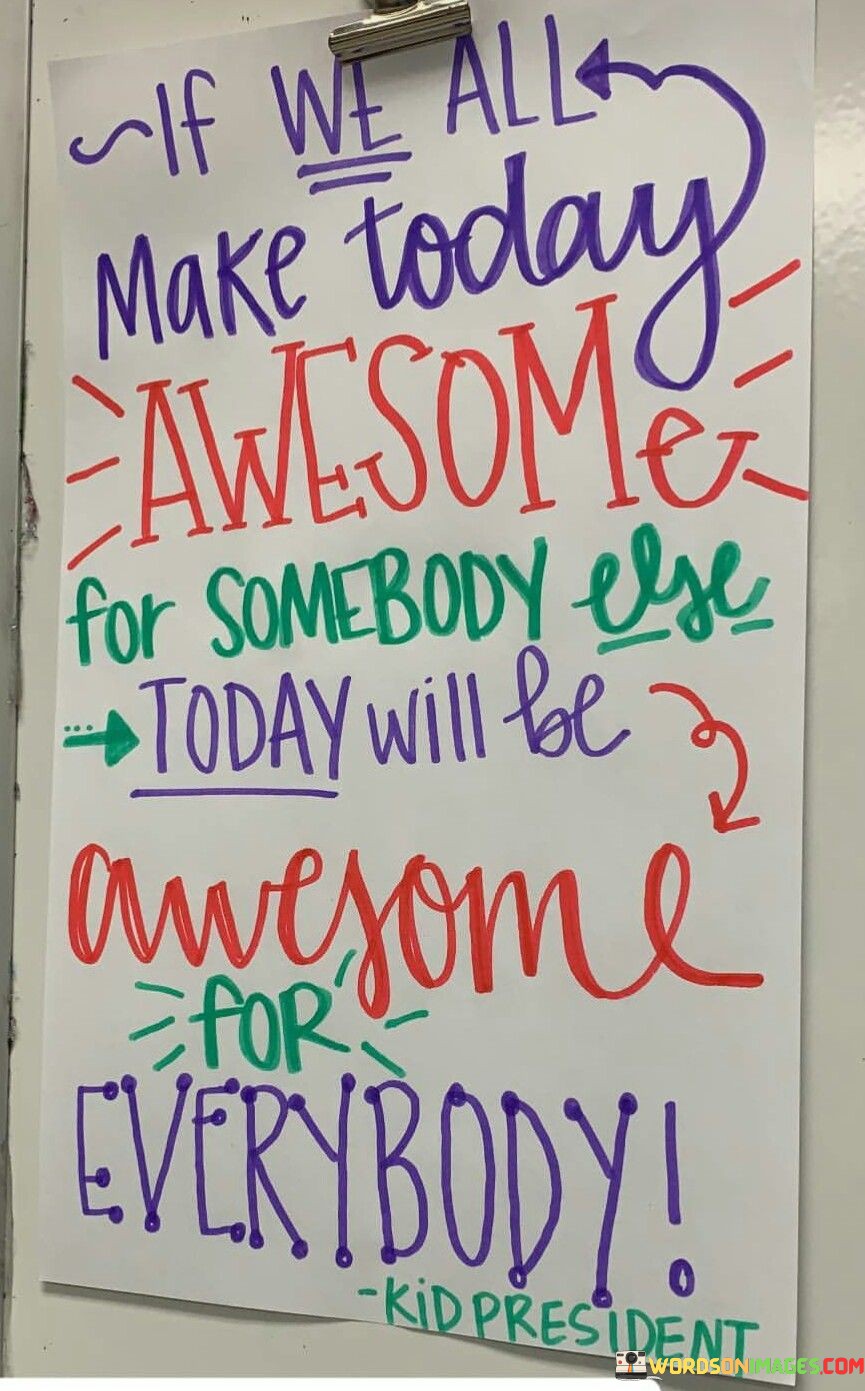 ~If WE ALL
Make today
AWESOMe
for SOMEBODY else
TODAY will be
awesome
fOR
EVERYBODY!
-KiD PRESiDENT
WORDSONIMAGES.COM